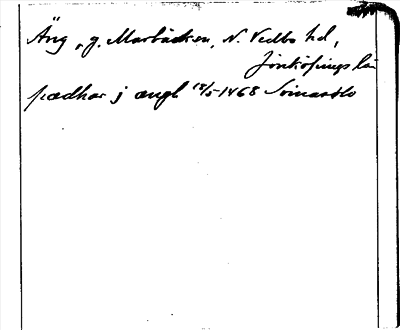 Äng, g. Marbäcken, N. Vedbo hd,
Jönköpings län
pædhar j ængl 18/5 1468